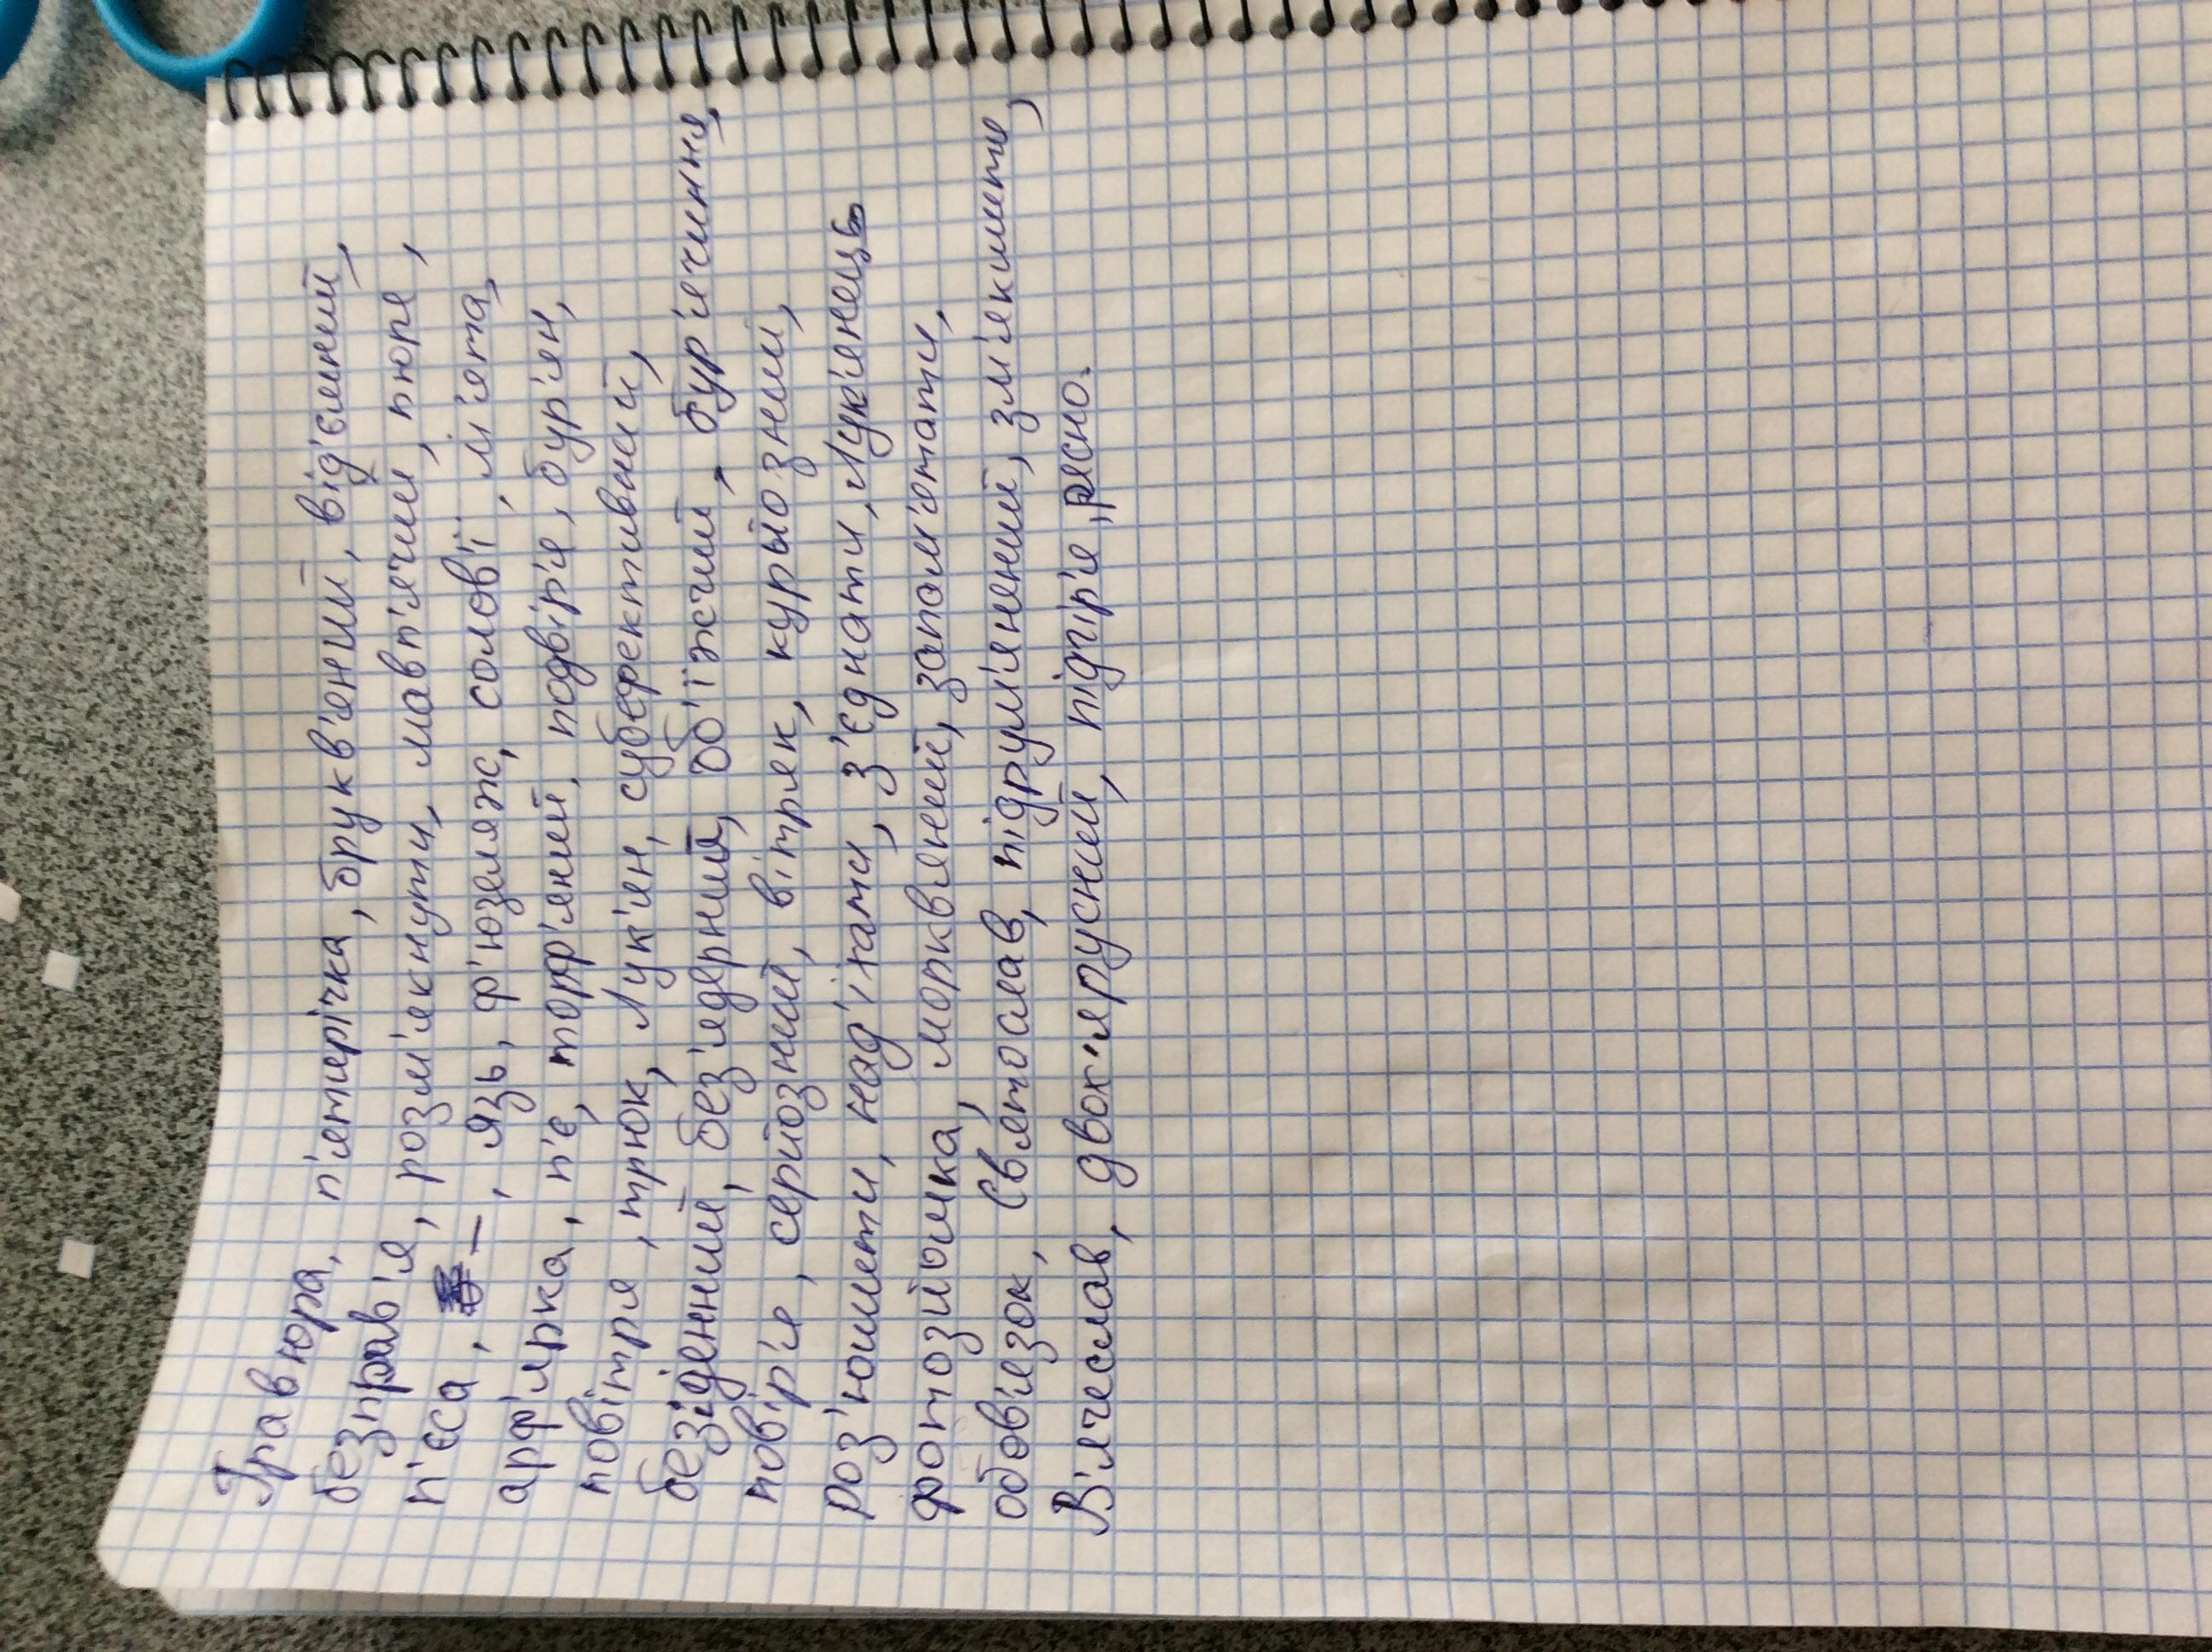 Гравюра, п'ятерічка, брукв'яний, від'ємний,
безправ'я, розм'якнути, мавп'ячий, пюре,
п'єса, –, язь, ф'юзеляж, солов'ї, м'ята,
арф'ярка, п'є, торф'яний, подвір'я, бур'ян,
повітря, трюк, Лук'ян, суб'єктивний,
безіденний, без'ядерний, об'їжчий, бур'ячиння,
повір'я, серйозний, вітряк, курьйозний,
роз'юшити, над'їхати, з'єднати, Лук'янець
фотозйомка, морквяний, запам'ятати,
обов'язок, Святослав, підрум'янений, зм'якшити,
В'ячеслав, двох'ярусний, підгір'я, рясно.